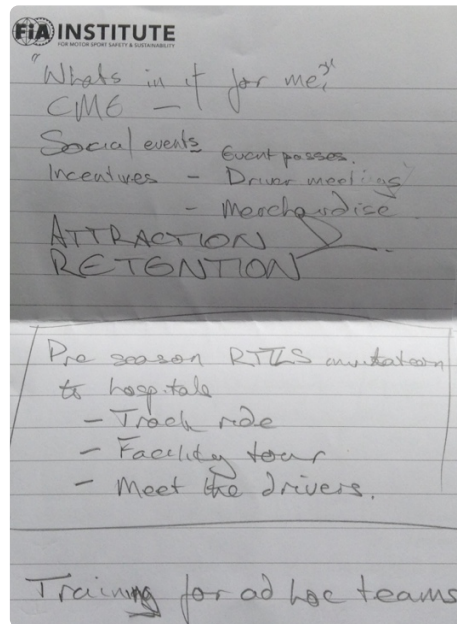 FiA INSTITUTE
FOR MOTOR SPORT SAFETY & SUSTAINABILITY
"Whats in it for me?"
CME -
Social events Event passes.
Incentives - Driver meetings
- Merchandise
ATTRACTION
RETENTION
Pre season invitation
to hospitals
- Track ride
- Facility tour
- Meet the drivers.
Training for ad hoc teams